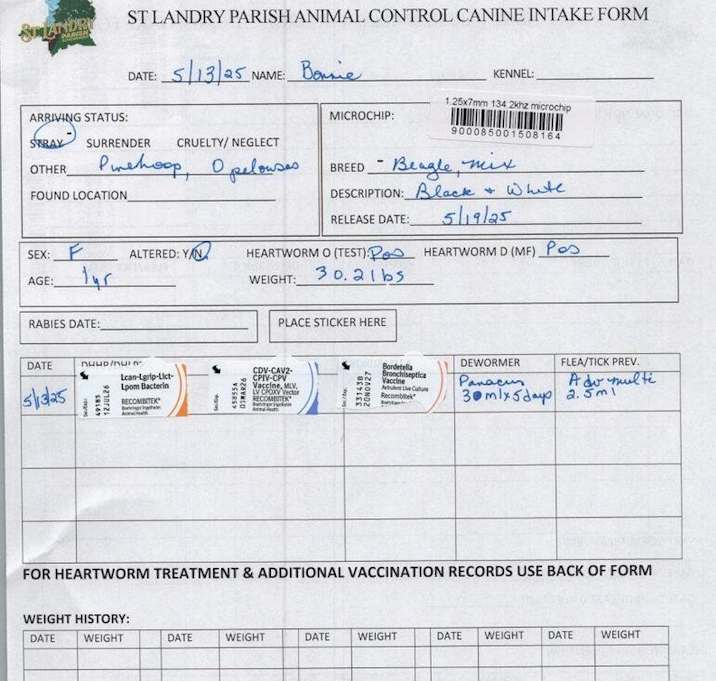 ST LANDRY PARISH
ST LANDRY PARISH ANIMAL CONTROL CANINE INTAKE FORM
DATE: 5/13/25 NAME: Bonnie KENNEL:
ARRIVING STATUS:
STRAY SURRENDER CRUELTY/ NEGLECT
OTHER Pinehoop, Opelousas
FOUND LOCATION
MICROCHIP:
1.25x7mm 134.2khz microchip
900085001508164
BREED - Beagle, mix
DESCRIPTION: Black + White
RELEASE DATE: 5/19/25
SEX: F ALTERED: Y/N HEARTWORM O (TEST): Pos HEARTWORM D (MF) Pos
AGE: 1yr WEIGHT: 30.2lbs
RABIES DATE: PLACE STICKER HERE
DATE DEWORMER FLEA/TICK PREV.
5/13/25
Lcan-Lgrip-Lict-
Lpom Bacterin
RECOMBITEK
Boehringer Ingelheim
Animal Health
49183
12JUL26
CDV-CAV2-
CPIV-CPV
Vaccine, MLV,
LV CPOXV Vector
RECOMBITEK
Boehringer Ingelheim
Animal Health
45855A
01MAR26
Bordetella
Bronchiseptica
Vaccine
Avirulent Live Culture
Recombitek
33143B
20NOV27
Panacur
30mlx5days
Advmulti
2.5ml
FOR HEARTWORM TREATMENT & ADDITIONAL VACCINATION RECORDS USE BACK OF FORM
WEIGHT HISTORY:
DATE WEIGHT DATE WEIGHT DATE WEIGHT DATE WEIGHT DATE WEIGHT